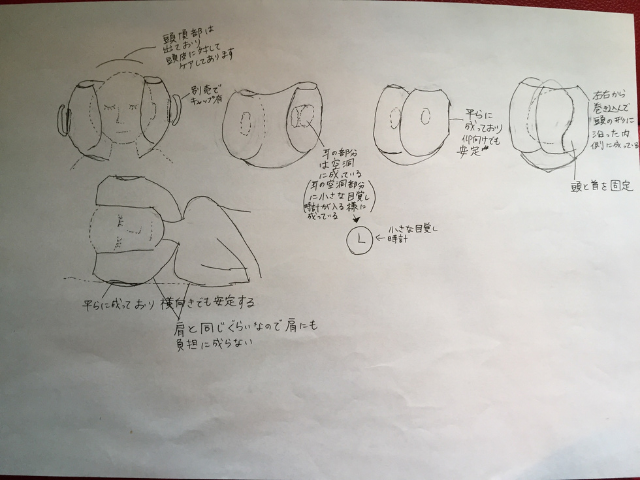 頭頂部は
出ており
頭皮に対して
ケアしてあります
別売で
キャップ有
耳の部分
は空洞
に成っている
(耳の空洞部分
に小さな目覚し
時計が入る様に
成っている)
小さな目覚し
時計
平らに
成っており
仰向けでも
安定
左右から
巻き込んで
頭のギリに
沿った内
側に成っている
頭と首を固定
平らに成っており 横向きでも安定する
肩と同じぐらいなので肩にも
負担に成らない